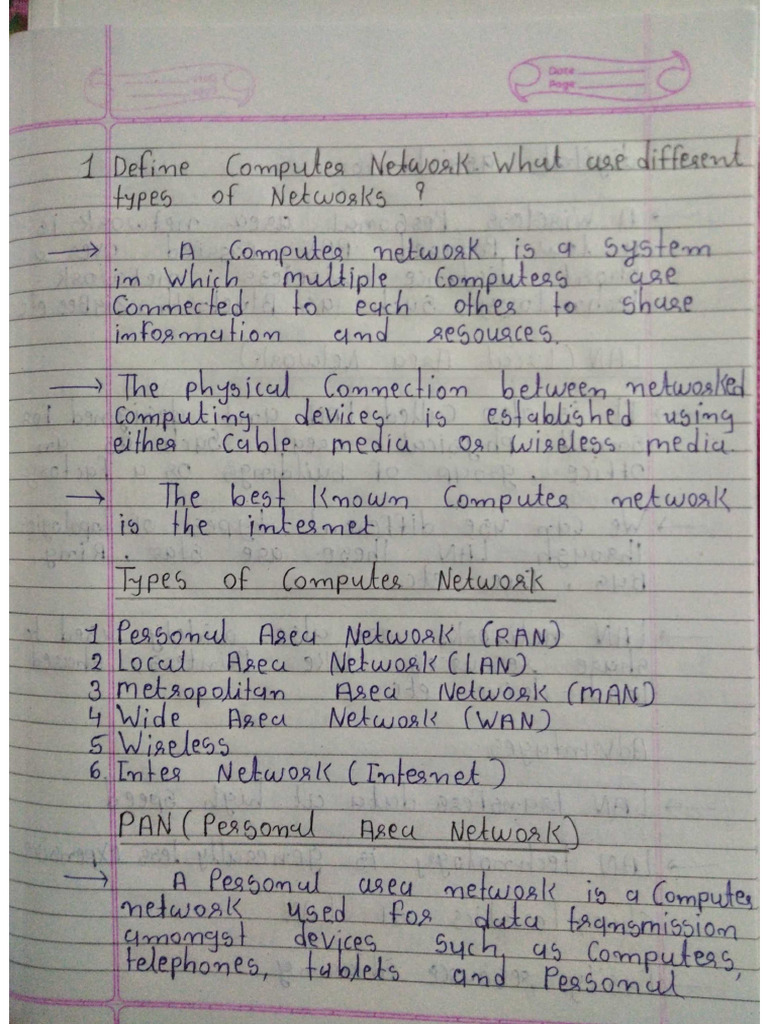 Date
Page
1 Define Computer Network. What are different
types of Networks ?
→ A Computer network is a system
in Which multiple Computers are
Connected to each other to share
information and resources.
→ The physical Connection between networked
Computing devices is established using
either Cable media or wireless media.
→ The best Known Computer network
is the internet.
Types of Computer Network
1 Personal Area Network (PAN)
2 Local Area Network (LAN).
3 Metropolitan Area Network (MAN)
4 Wide Area Network (WAN)
5 Wireless
6. Inter Network (Internet)
PAN (Personal Area Network)
→ A Personal area network is a Computer
network used for data transmission
amongst devices such as Computers,
telephones, tablets and Personal